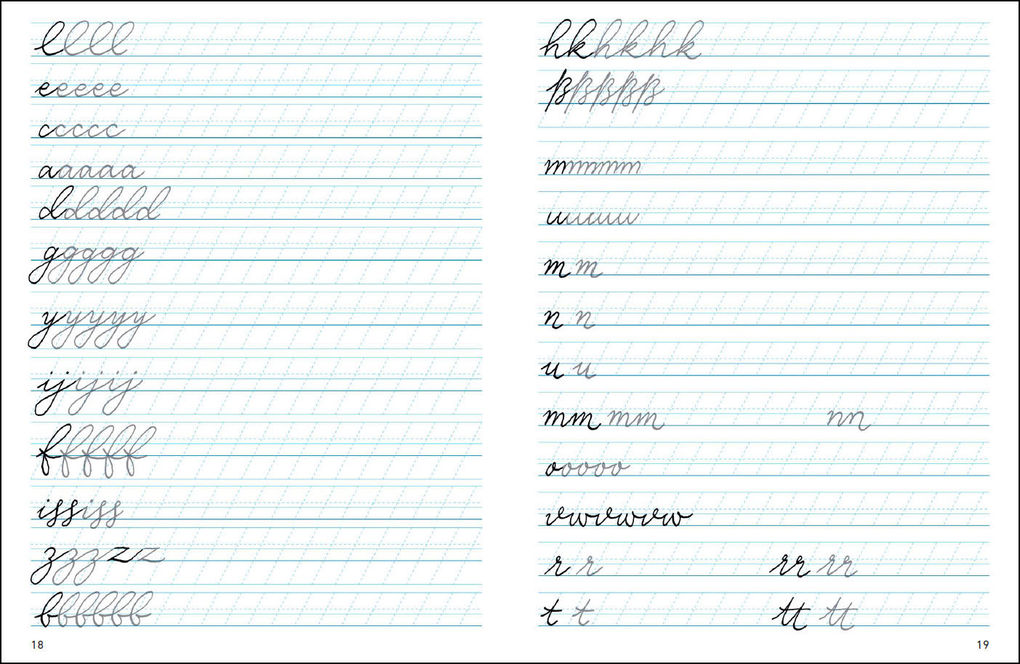 llll
eeeee
ccccc
aaaaa
ddddd
ggggg
yyyyy
ijijij
fffff
ississ
zzzzz
bbbbbb
18
hkhkhk
ßßßßß
mmmm
uuuuu
m m
n n
u u
mm mm nn
ooooo
vwvwvw
r r rr rr
t t tt tt
19